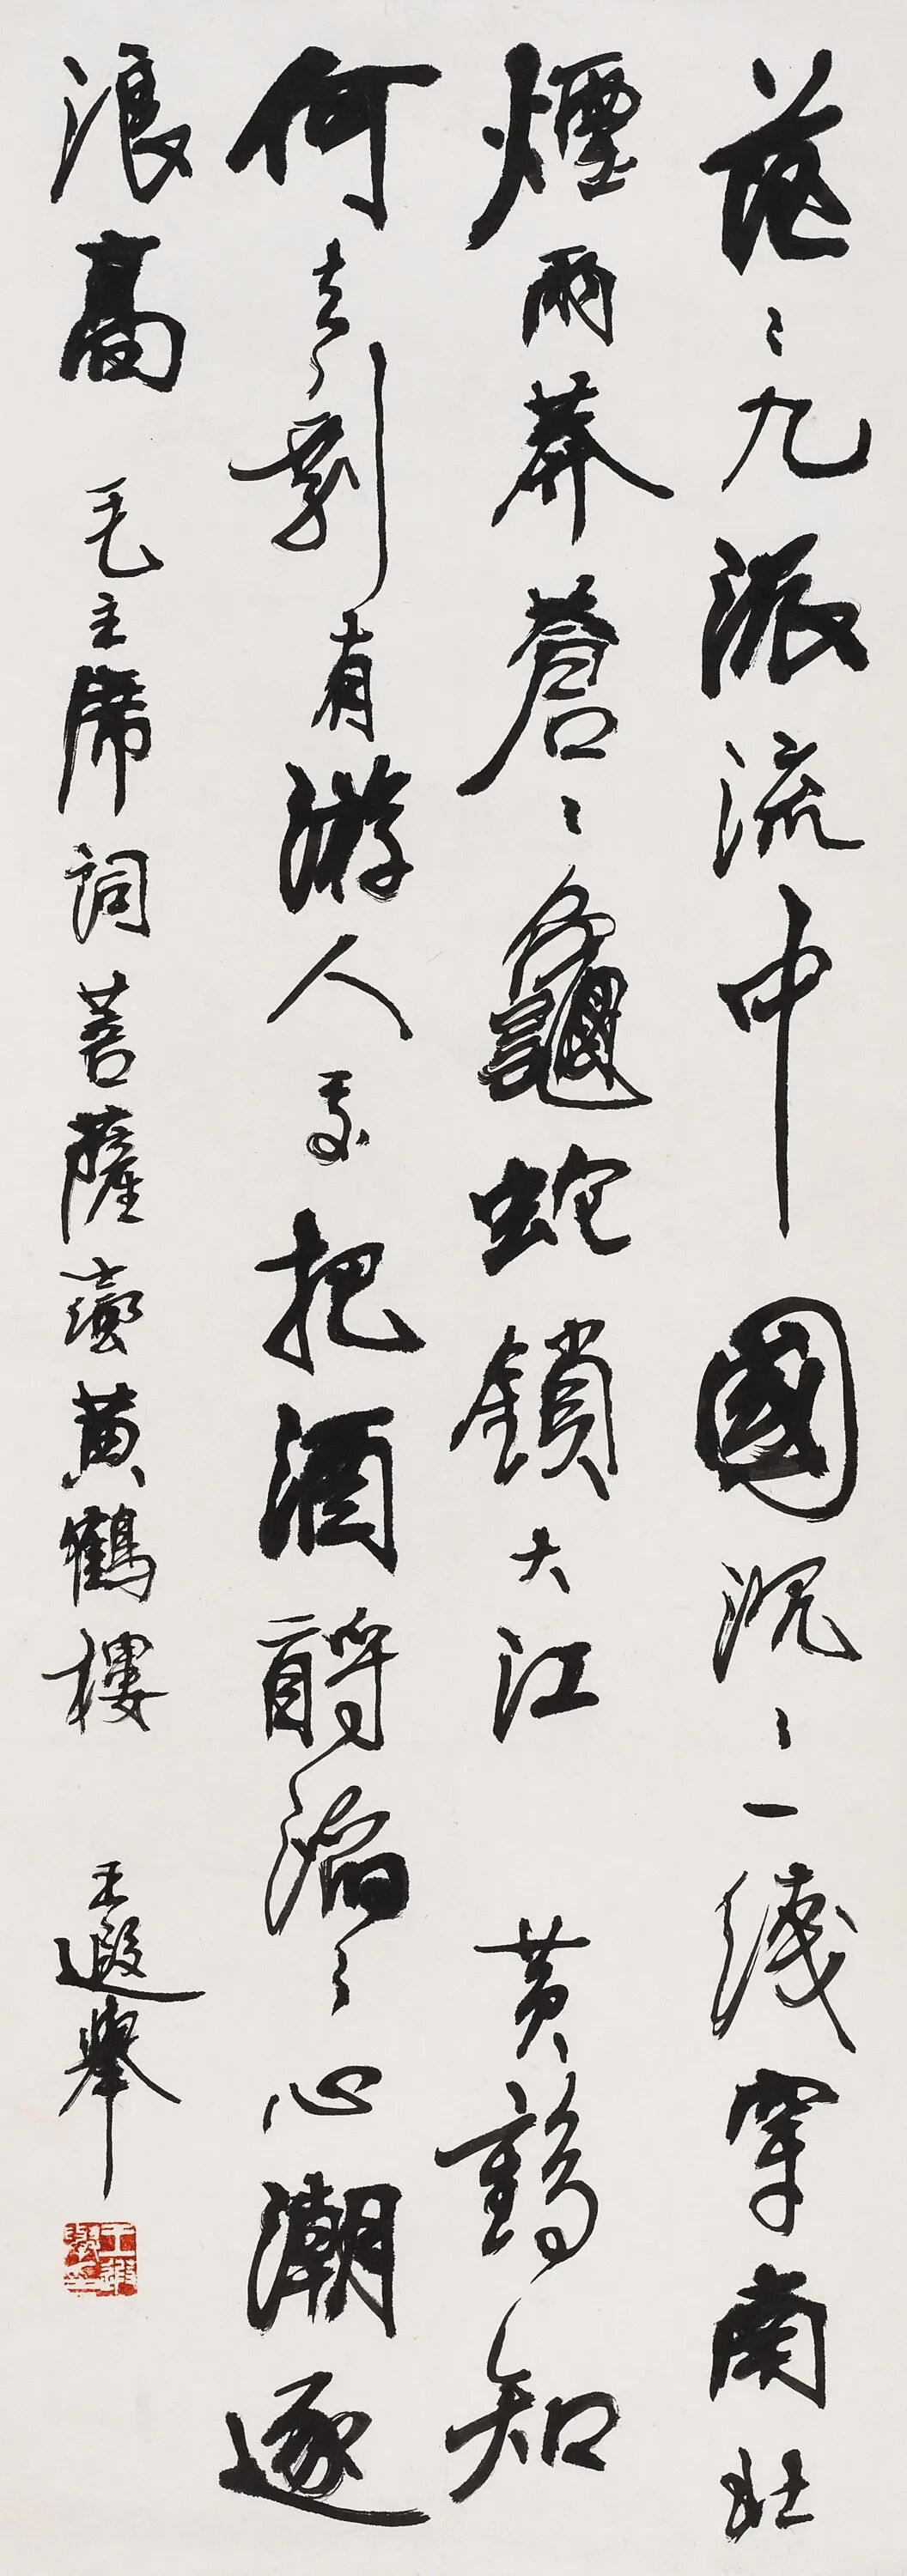 茫〻九派流中國沉〻一綫穿南北
煙雨莽蒼〻龜蛇鎖大江 黄鶴知
何去剩有游人處把酒酹滔〻心潮逐
浪高 毛主席詞菩薩蠻黄鶴樓 王遐舉
王遐舉印